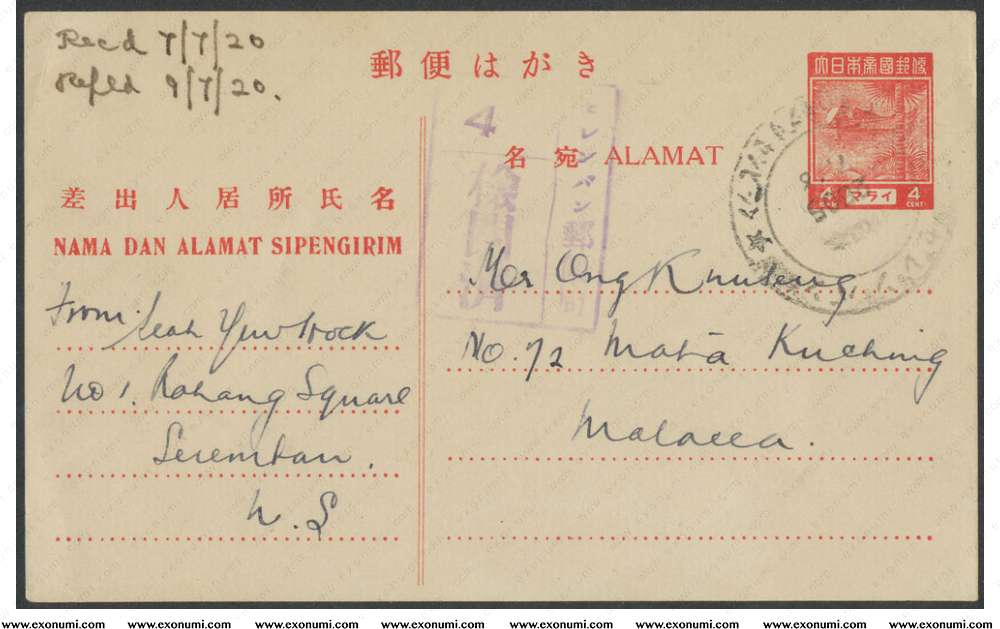 Recd 7/7/20
Repld 9/7/20.
郵便はがき
大日本帝國郵便
4 マライ 4
CENT
名宛 ALAMAT
差出人居所氏名
NAMA DAN ALAMAT SIPENGIRIM
4
セレンバン郵便局
検閲済
From: Seah Yew Hock
No 1. Rahang Square
Seremban.
N. S
Mr Ong Khuseng
No. 72 Mata Kuching
Malacca.
www.exonumi.com www.exonumi.com www.exonumi.com www.exonumi.com www.exonumi.com www.exonumi.com www.exonumi.com www.exonumi.com